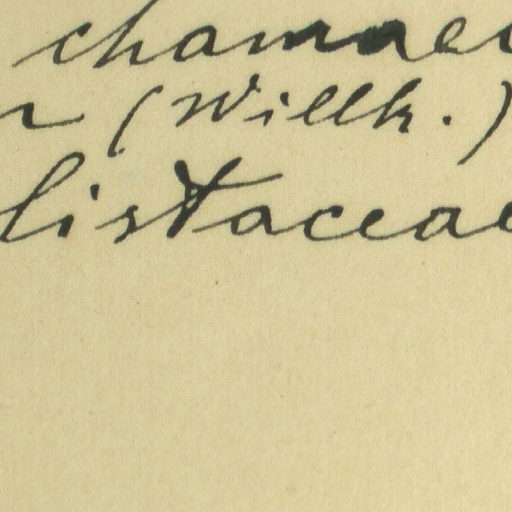 chamae
(Willk.)
listaceae